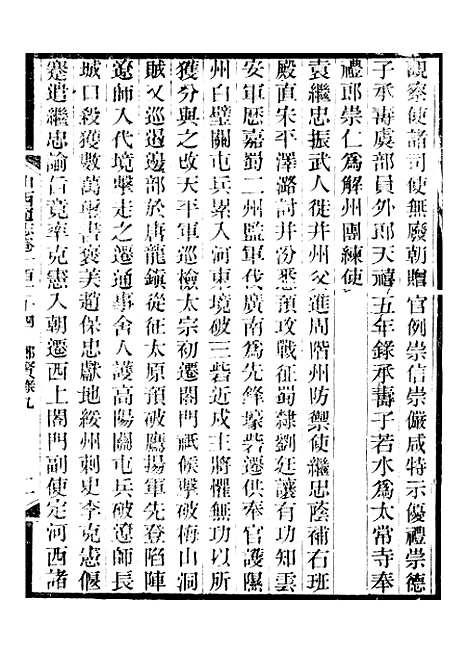 觀察使諸司使無廢朝贈官例崇信崇儼咸特示優禮崇德
子承壽虞部員外郎天禧五年錄承壽子若水爲太常寺奉
禮郎崇仁爲解州團練使
袁繼忠振武人徙井州父進周階州防禦使繼忠蔭補右班
殿直宋平澤潞討井汾悉預攻戰征蜀隸劉廷讓有功知雲
安軍歷嘉蜀二州監軍伐廣南爲先鋒壕砦遷供奉官護隰
州白壁關屯兵累入河東境破三砦近戍主將懼無功以所
獲分與之改天平軍巡檢太宗初遷閣門祗候擊破梅山洞
賊又巡遏邊部於唐龍鎮從征太原預破鷹揚軍先登陷陣
遼師入代境擊走之遷通事舍人護高陽關屯兵破遼師長
城口殺獲數萬璽書褒美趙保忠獻地綏州刺史李克憲偃
蹇遣繼忠諭旨竟率克憲入朝遷西上閣門副使定河西諸
山西通志卷一百二十四 鄉賢錄九